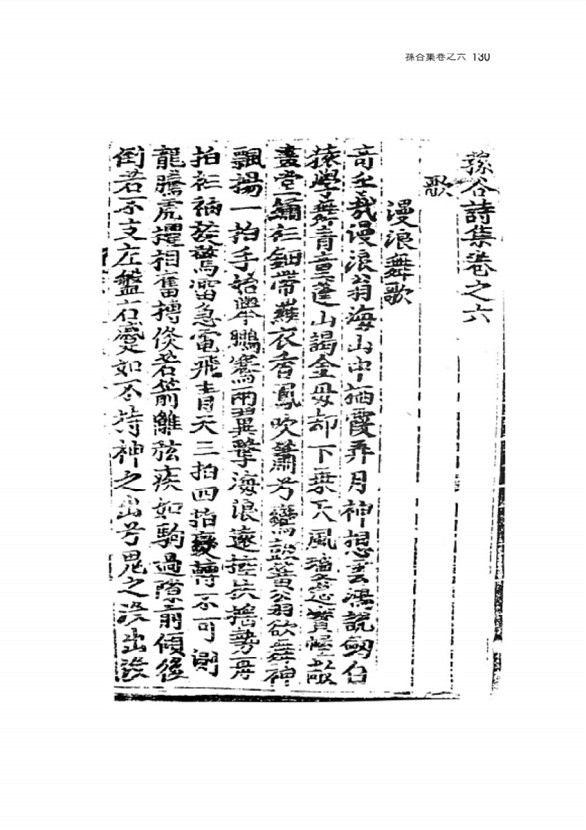 蓀谷集卷之六 130
蓀谷詩集卷之六
歌
漫浪舞歌
奇乎哉漫浪翁海山中栖霞弄月神想雲鴻說劒白
猿學舞青童蓬山謁金母却下乘天風瑤筵寶幄敞
畫堂繡衫鈿帶蕙衣香鳳吹簫兮鸞鼓簧翁欲舞神
飄揚一拍手始擧鵬騫兩翼擊海浪遠控扶搖勢再
拍衫袖旋驚雷急電飛青天三拍四拍變轉不可測
龍騰虎躍相奮搏倏若箭離弦疾如駒過隙前傾後
倒若不支左盤右蹙如不持神之出兮鬼之沒出沒